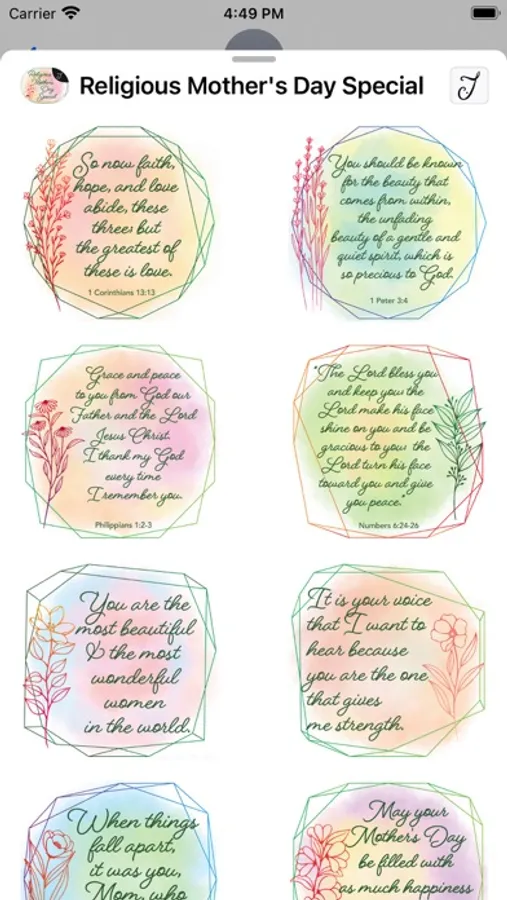 Carrier 4:49 PM
Religious Mother's Day Special
So now faith,
hope, and love
abide, these
three; but
the greatest of
these is love.
1 Corinthians 13:13
You should be known
for the beauty that
comes from within,
the unfading
beauty of a gentle and
quiet spirit, which is
so precious to God.
1 Peter 3:4
Grace and peace
to you from God our
Father and the Lord
Jesus Christ.
I thank my God
every time
I remember you.
Philippians 1:2-3
"The Lord bless you
and keep you the
Lord make his face
shine on you and be
gracious to you the
Lord turn his face
toward you and give
you peace."
Numbers 6:24-26
You are the
most beautiful
& the most
wonderful
women
in the world.
It is your voice
that I want to
hear because
you are the one
that gives
me strength.
When things
fall apart,
it was you,
Mom, who
May your
Mother's Day
be filled with
as much happiness